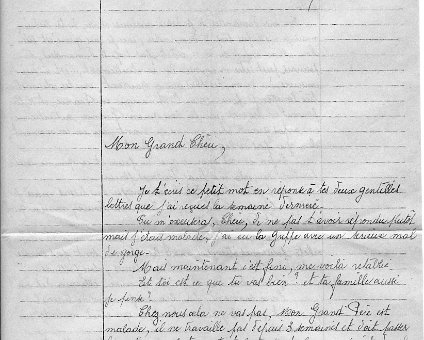 Mon Grand Chéu,
Je t'écris ce petit mot en réponse à tes deux gentilles
lettres que j'ai reçues la semaine dernière.
Tu m'excusera, Chéu, de ne pas t'avoir répondu plutôt
mais j'étais malade, j'ai eu la Grippe avec un sérieux mal
de gorge.
Mais maintenant c'est fini, me voilà rétablie.
Et toi est ce que tu vas bien? et ta famille aussi
je pense?
Chez nous cela ne vas pas, Mon Grand Père est
malade, il ne travaille pas depuis 3 semaines et doit passer